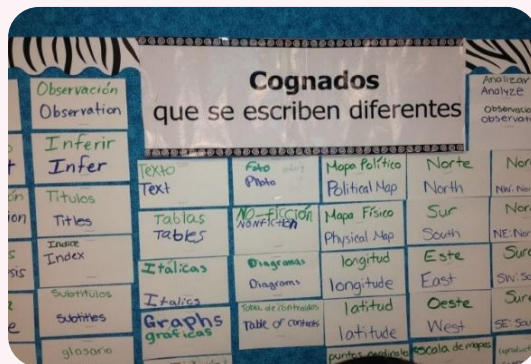 Cognados
que se escriben diferentes
Observación
Observation
Inferir
Infer
Titulos
Titles
Indice
Index
Subtitulos
Subtitles
glosario
Texto
Text
Tablas
Tables
Itálicas
Italics
Graphs
graficas
Foto
Photo
NO-ficción
Nonfiction
Diagramas
Diagrams
Tabla de contenidos
Table of contents
Mapa Político
Political Map
Mapa Físico
Physical Map
longitud
longitude
latitud
latitude
puntos cardinales
Norte
North
Sur
South
Este
East
Oeste
West
escala de mapas
Analizar
Analyze